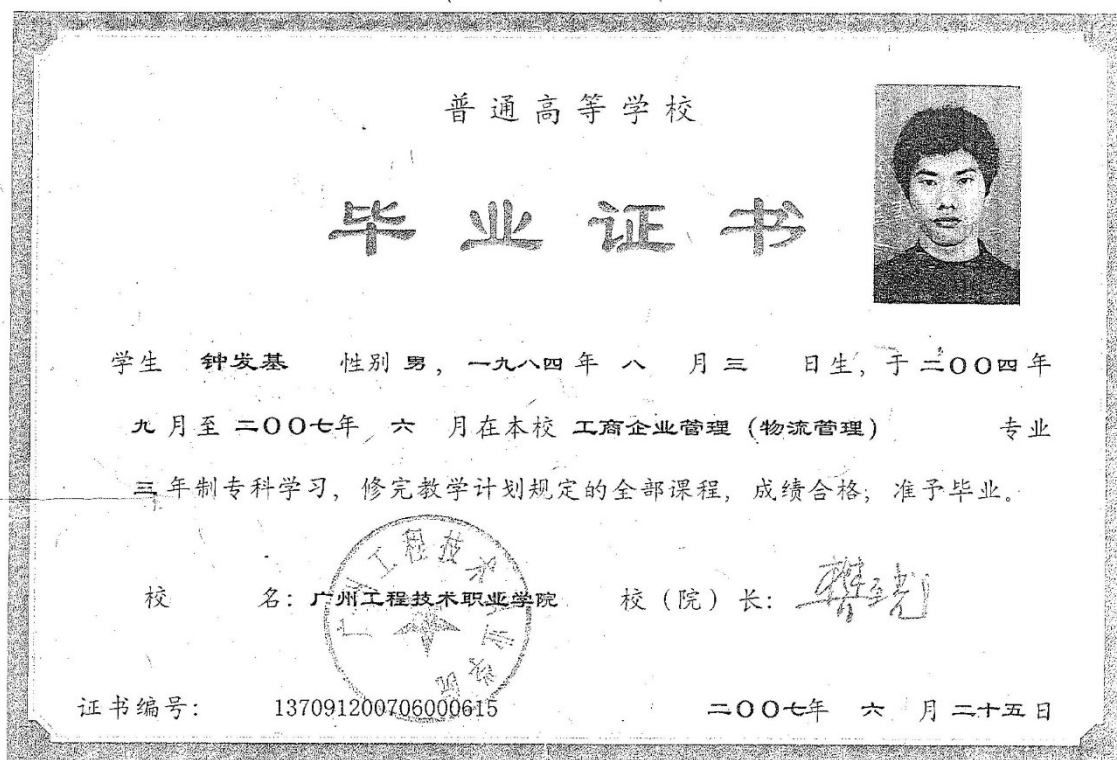 普通高等学校
毕业证书
学生 钟发基 性别 男, 一九八四年 八 月 三 日生, 于 二〇〇四年
九 月至 二〇〇七年 六 月在本校 工商企业管理 (物流管理) 专业
三 年制专科学习, 修完教学计划规定的全部课程, 成绩合格, 准予毕业。
校 名: 广州工程技术职业学院 校 (院) 长:
广州工程技术职业学院
证书编号: 137091200706000615 二〇〇七年 六 月 二十五日